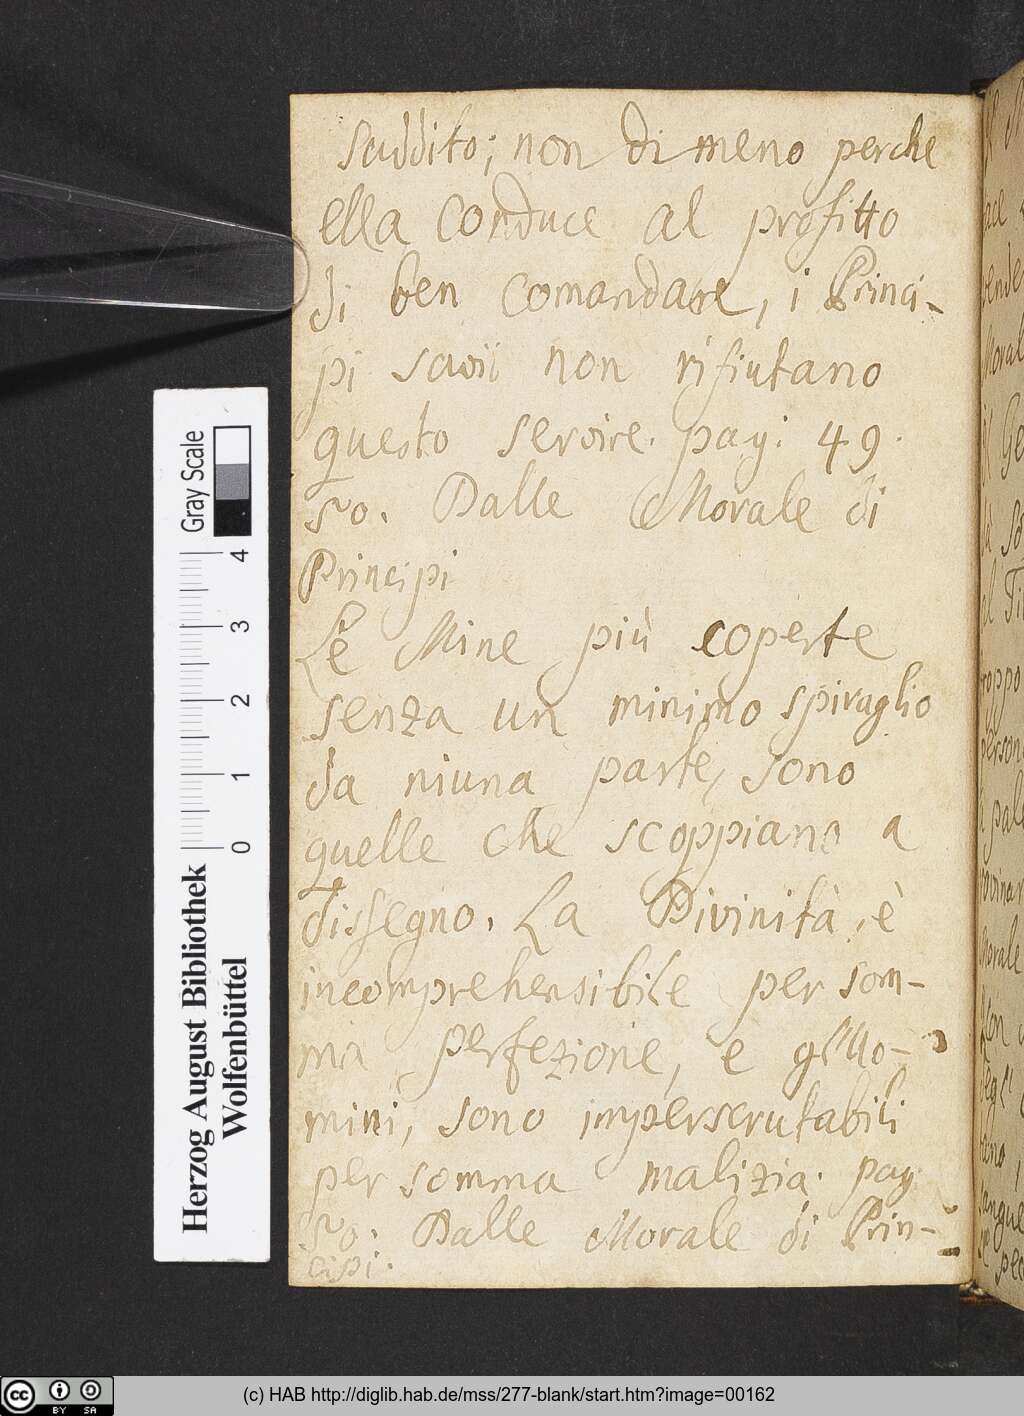 suddito; non di meno perche
ella conduce al profitto
di ben comandare, i Princi-
pi savii non rifiutano
questo servire. pag. 49.
50. Dalle Morale di
Principi
Le Mine più coperte
senza un minimo spiraglio
da niuna parte, sono
quelle che scoppiano a
dissegno. La Divinità, è
incomprehensibile per som-
ma perfezione, e gl'Uo-
mini, sono imperscrutabili
per somma malizia. pag.
50. Dalle Morale di Prin-
cipi.
Herzog August Bibliothek
Wolfenbüttel
0 1 2 3 4
Gray Scale
cc BY SA
(c) HAB http://diglib.hab.de/mss/277-blank/start.htm?image=00162